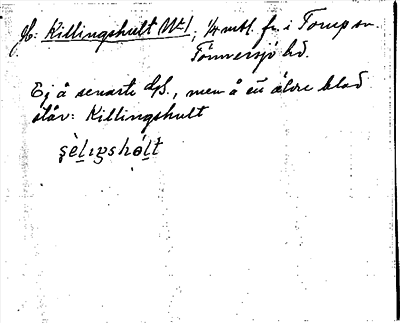 Jb: Killingshult Nr 1, 1/4 mtl. fr. i Torup sn.
Tönnersjö hd.
Ej å senaste Lfs., men å en äldre blad
står: Killingshult